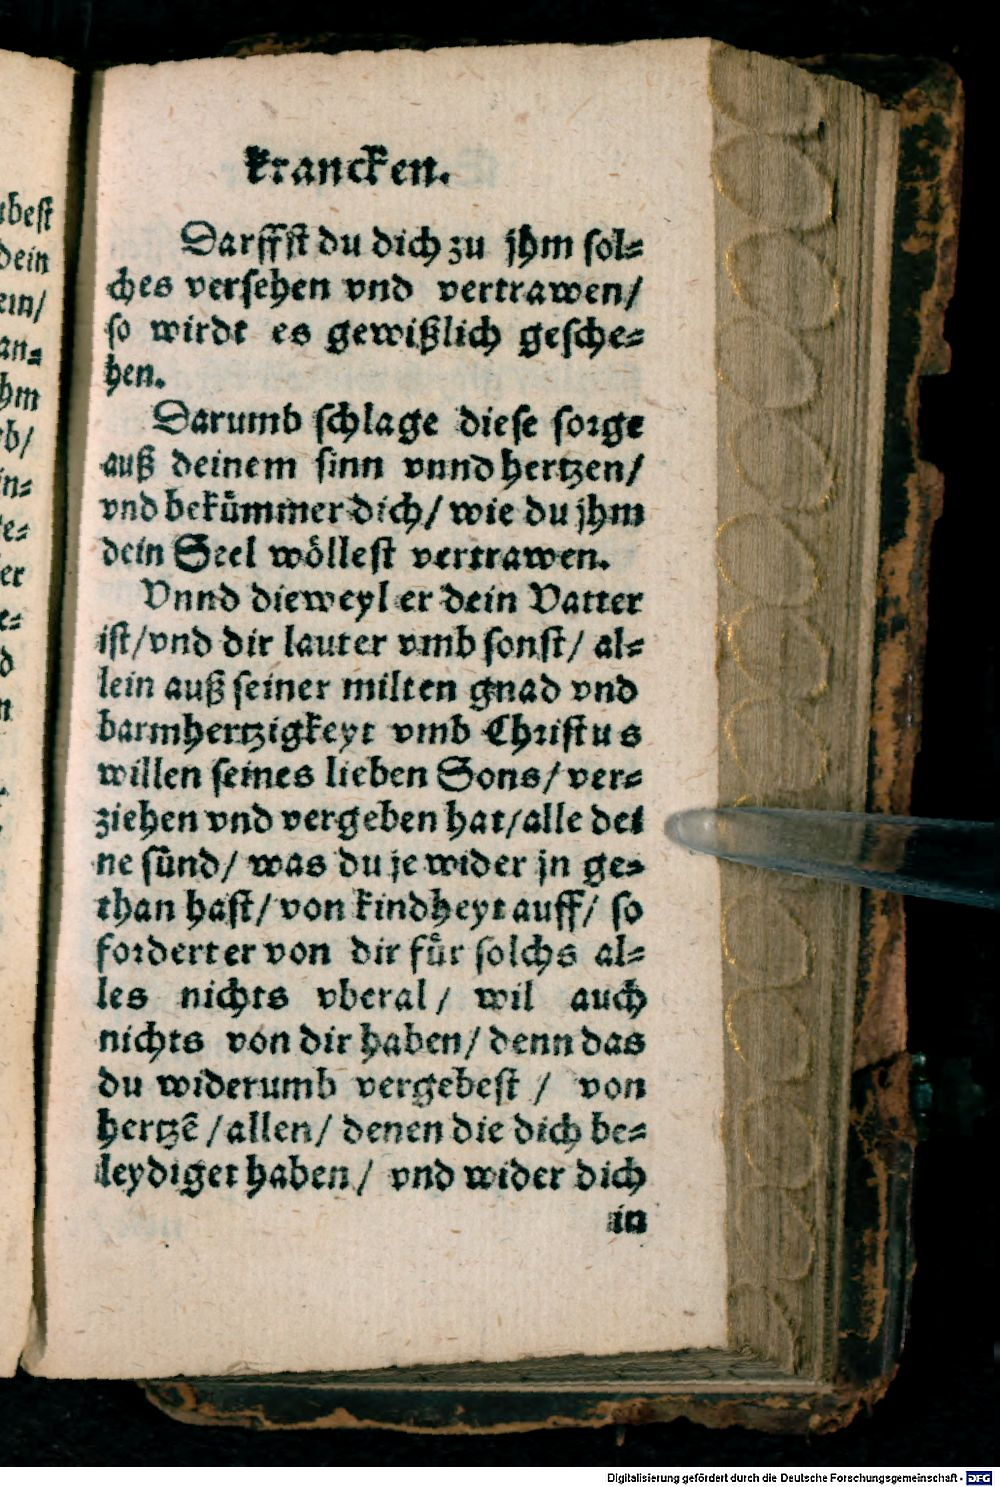 krancken.
Darffst du dich zu jhm sol⸗
ches versehen vnd vertrawen/
so wirdt es gewißlich gesche⸗
hen.
Darumb schlage diese sorge
auß deinem sinn vnnd hertzen/
vnd bekům̃mer dich/ wie du jhm
dein Seel wöllest vertrawen.
Vnnd dieweyl er dein Vatter
ist/vnd dir lauter vmb sonst/ al⸗
lein auß seiner milten gnad vnd
barmhertzigkeyt vmb Christus
willen seines lieben Sons/ ver⸗
ziehen vnd vergeben hat/alle dei
ne sünd/ was du je wider jn ge⸗
than hast/ von kindheyt auff/ so
fordert er von dir für solchs al⸗
les nichts vberal/ wil auch
nichts von dir haben/ denn das
du widerumb vergebest / von
hertzē /allen/ denen die dich be⸗
leydiget haben/ vnd wider dich
in
ubest
dein
ein/
an⸗
hm
eb/
in⸗
te⸗
er
e⸗
d
n
Digitalisierung gefördert durch die Deutsche Forschungsgemeinschaft - DFG